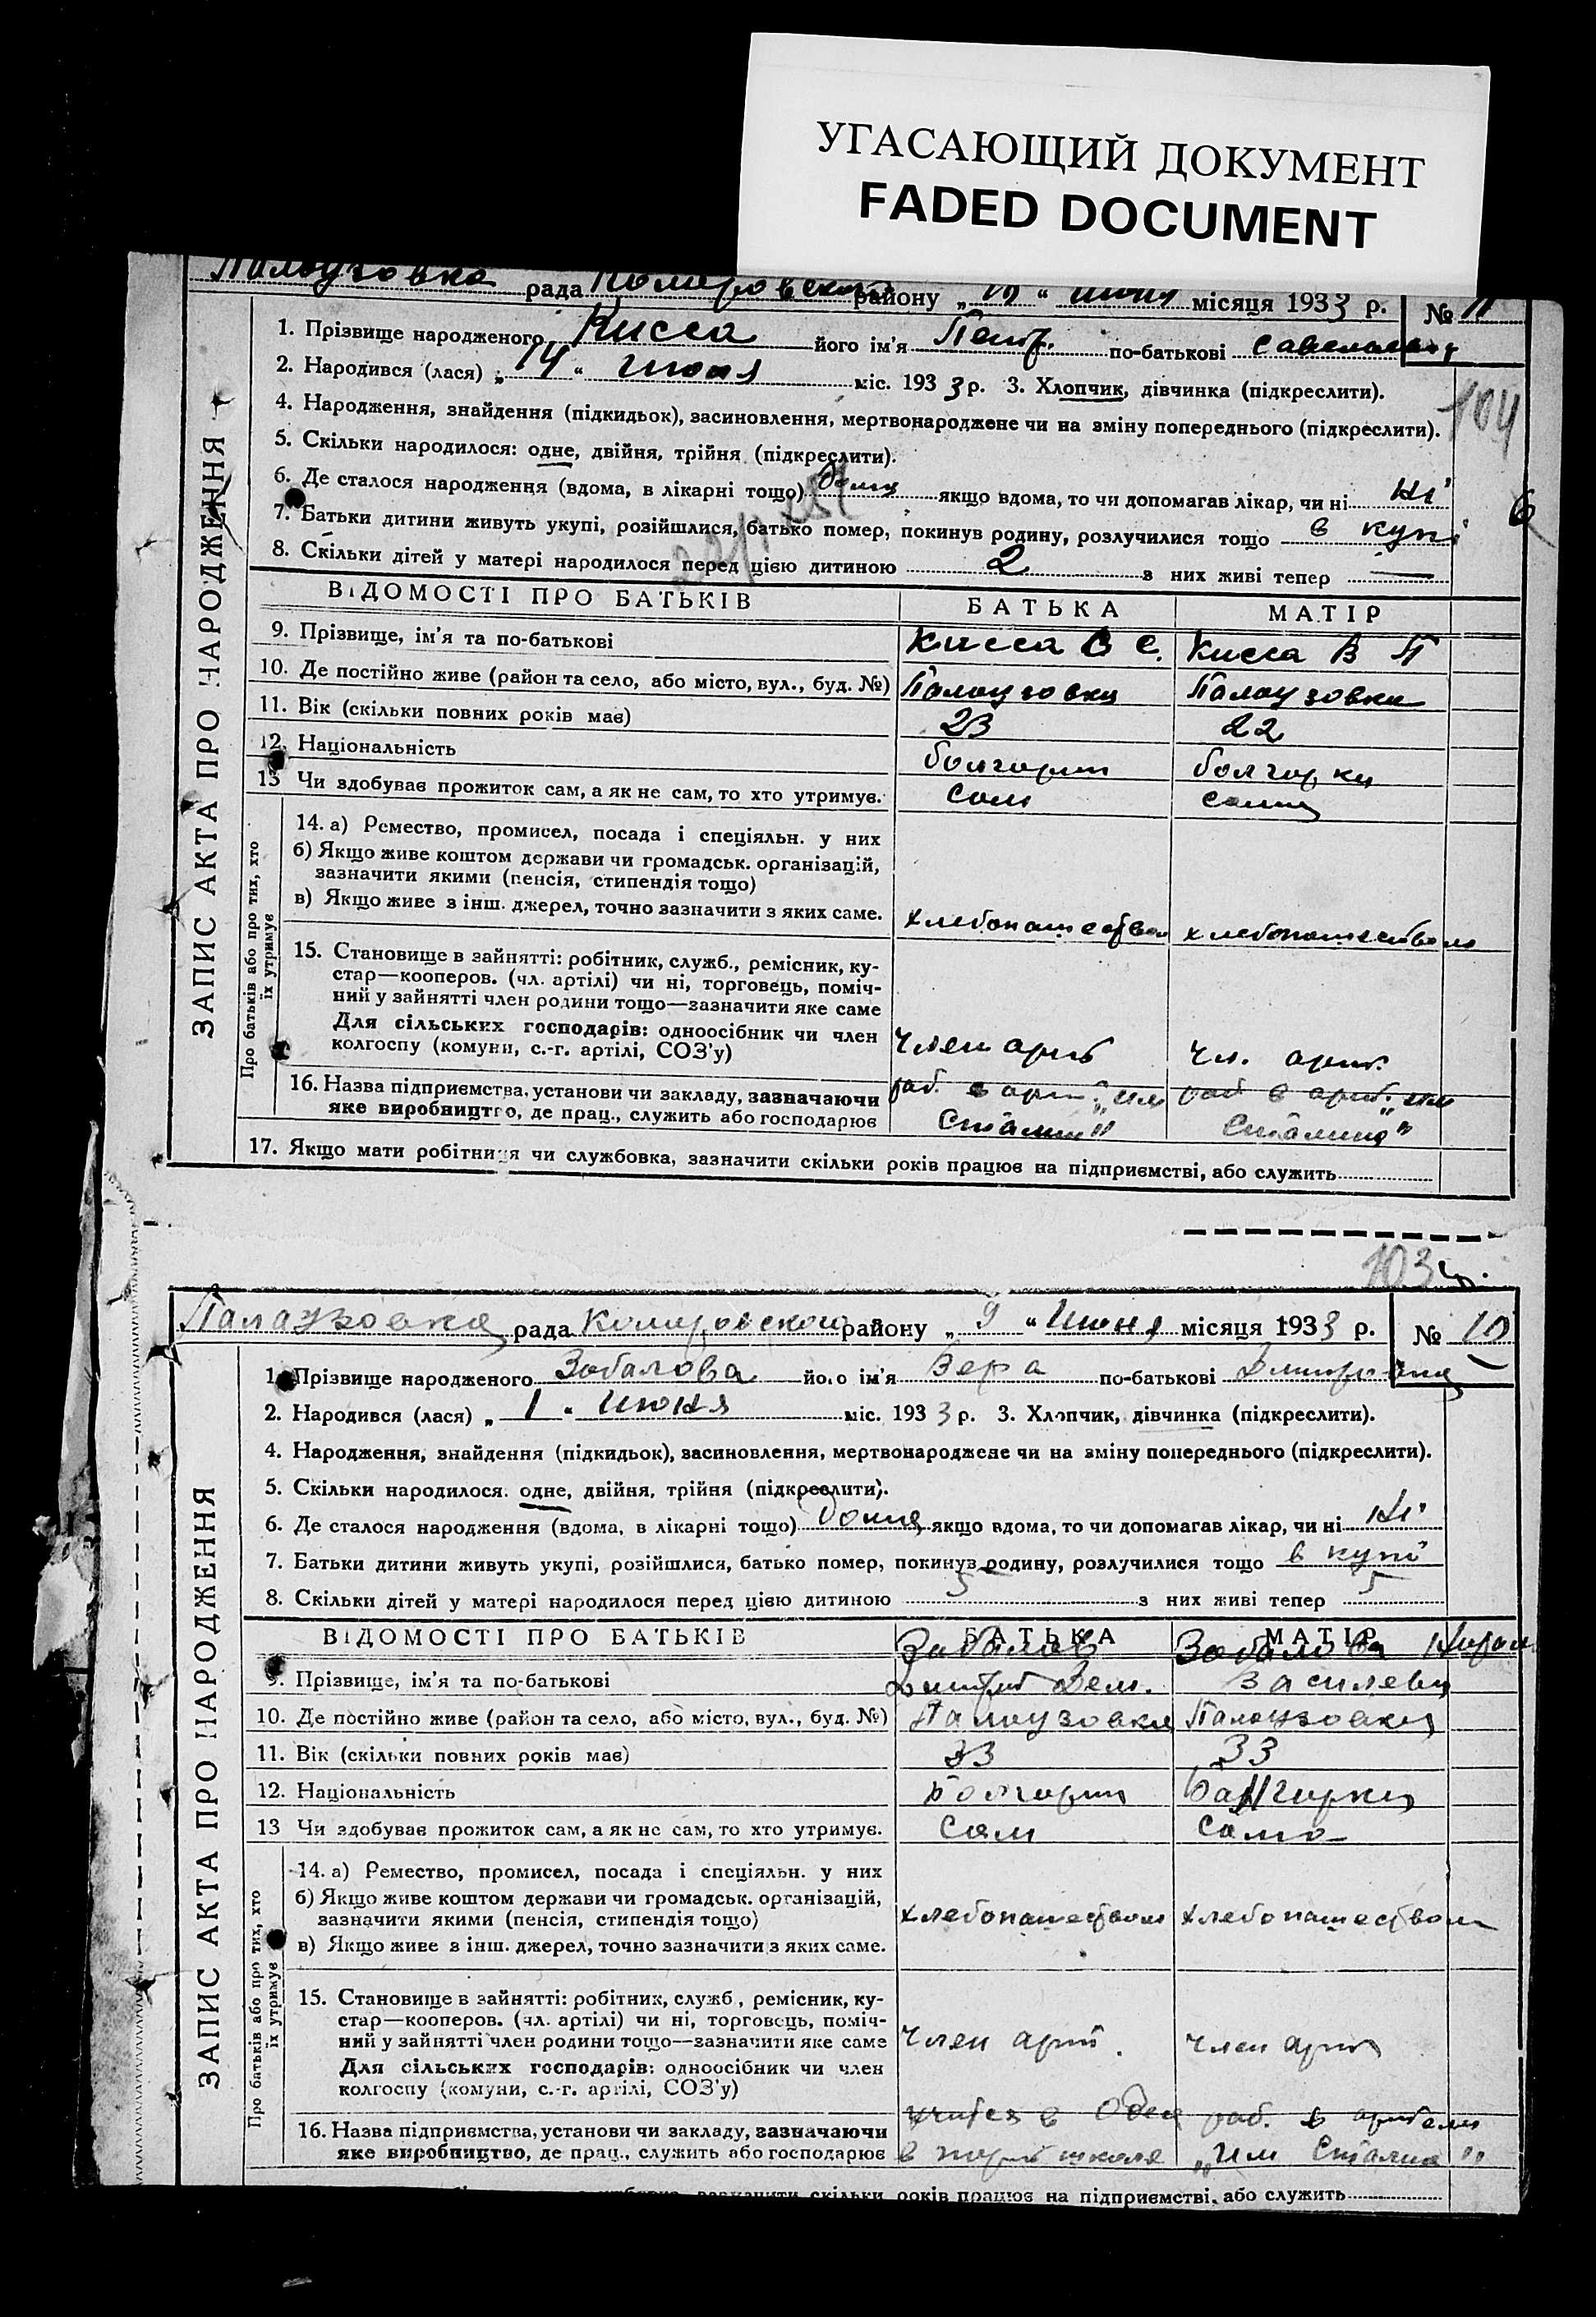 УГАСАЮЩИЙ ДОКУМЕНТ
FADED DOCUMENT
Палаузовка рада Комаровского району „ “ июня місяця 1933 р. № 11
1. Прізвище народженого Кисса його ім’я Петр. по-батькові Савельевич
2. Народився (лася) „ 14 “ июня міс. 1933 р. 3. Хлопчик, дівчинка (підкреслити).
104
4. Народження, знайдення (підкидьок), засиновлення, мертвонароджене чи на зміну попереднього (підкреслити).
5. Скільки народилося: одне, двійня, трійня (підкреслити).
6. Де сталося народження (вдома, в лікарні тощо) дома якщо вдома, то чи допомагав лікар, чи ні ні
7. Батьки дитини живуть укупі, розійшлися, батько помер, покинув родину, розлучилися тощо в купі
8. Скільки дітей у матері народилося перед цією дитиною 2 з них живі тепер —
ЗАПИС АКТА ПРО НАРОДЖЕННЯ
ВІДОМОСТІ ПРО БАТЬКІВ БАТЬКА МАТІР
9. Прізвище, ім’я та по-батькові Кисса С С. Кисса В П
10. Де постійно живе (район та село, або місто, вул., буд. №) Палаузовка Палаузовка
11. Вік (скільки повних років має) 23 22
12. Національність болгарин болгарка
13 Чи здобуває прожиток сам, а як не сам, то хто утримує. сам сама
Про батьків або про тих, хто їх утримує
14. а) Ремество, промисел, посада і спеціяльн. у них
б) Якщо живе коштом держави чи громадськ. організацій,
зазначити якими (пенсія, стипендія тощо)
в) Якщо живе з інш. джерел, точно зазначити з яких саме. хлебопашеством хлебопашеством
15. Становище в зайнятті: робітник, служб., ремісник, ку-
стар—кооперов. (чл. артілі) чи ні, торговець, поміч-
ний у зайнятті член родини тощо—зазначити яке саме
Для сільських господарів: одноосібник чи член
колгоспу (комуни, с.-г. артілі, СОЗ’у) член арт чл. арт.
16. Назва підприємства, установи чи закладу, зазначаючи раб. в арт. „им раб в арт. „им
яке виробництво, де прац., служить або господарює Сталина“ Сталина“
17. Якщо мати робітниця чи службовка, зазначити скільки років працює на підприємстві, або служить
103
Палаузовка рада Комаровского району „ 9 “ Июня місяця 1933 р. № 10
1. Прізвище народженого Забалова його ім’я Вера по-батькові Дмитриевна
2. Народився (лася) „ 1 “ июня міс. 1933 р. 3. Хлопчик, дівчинка (підкреслити).
4. Народження, знайдення (підкидьок), засиновлення, мертвонароджене чи на зміну попереднього (підкреслити).
5. Скільки народилося: одне, двійня, трійня (підкреслити).
6. Де сталося народження (вдома, в лікарні тощо) дома якщо вдома, то чи допомагав лікар, чи ні ні
7. Батьки дитини живуть укупі, розійшлися, батько помер, покинув родину, розлучилися тощо в купі
8. Скільки дітей у матері народилося перед цією дитиною 5 з них живі тепер 5
ЗАПИС АКТА ПРО НАРОДЖЕННЯ
ВІДОМОСТІ ПРО БАТЬКІВ БАТЬКА МАТІР
Забалов Забалова
9. Прізвище, ім’я та по-батькові Дмитрий Дем. Василевн
10. Де постійно живе (район та село, або місто, вул., буд. №) Палаузовка Палаузовка
11. Вік (скільки повних років має) 33 33
12. Національність Болгарин Балгарка
13 Чи здобуває прожиток сам, а як не сам, то хто утримує. Сам Само
Про батьків або про тих, хто їх утримує
14. а) Ремество, промисел, посада і спеціяльн. у них
б) Якщо живе коштом держави чи громадськ. організацій,
зазначити якими (пенсія, стипендія тощо) хлебопашеством хлебопашеством
в) Якщо живе з інш. джерел, точно зазначити з яких саме.
15. Становище в зайнятті: робітник, служб., ремісник, ку-
стар—кооперов. (чл. артілі) чи ні, торговець, поміч-
ний у зайнятті член родини тощо—зазначити яке саме член арт. член арт
Для сільських господарів: одноосібник чи член
колгоспу (комуни, с.-г. артілі, СОЗ’у)
учится в Одес раб. в артели
16. Назва підприємства, установи чи закладу, зазначаючи
яке виробництво, де прац., служить або господарює в парт школе „им Сталина“
зазначити скільки років працює на підприємстві, або служить